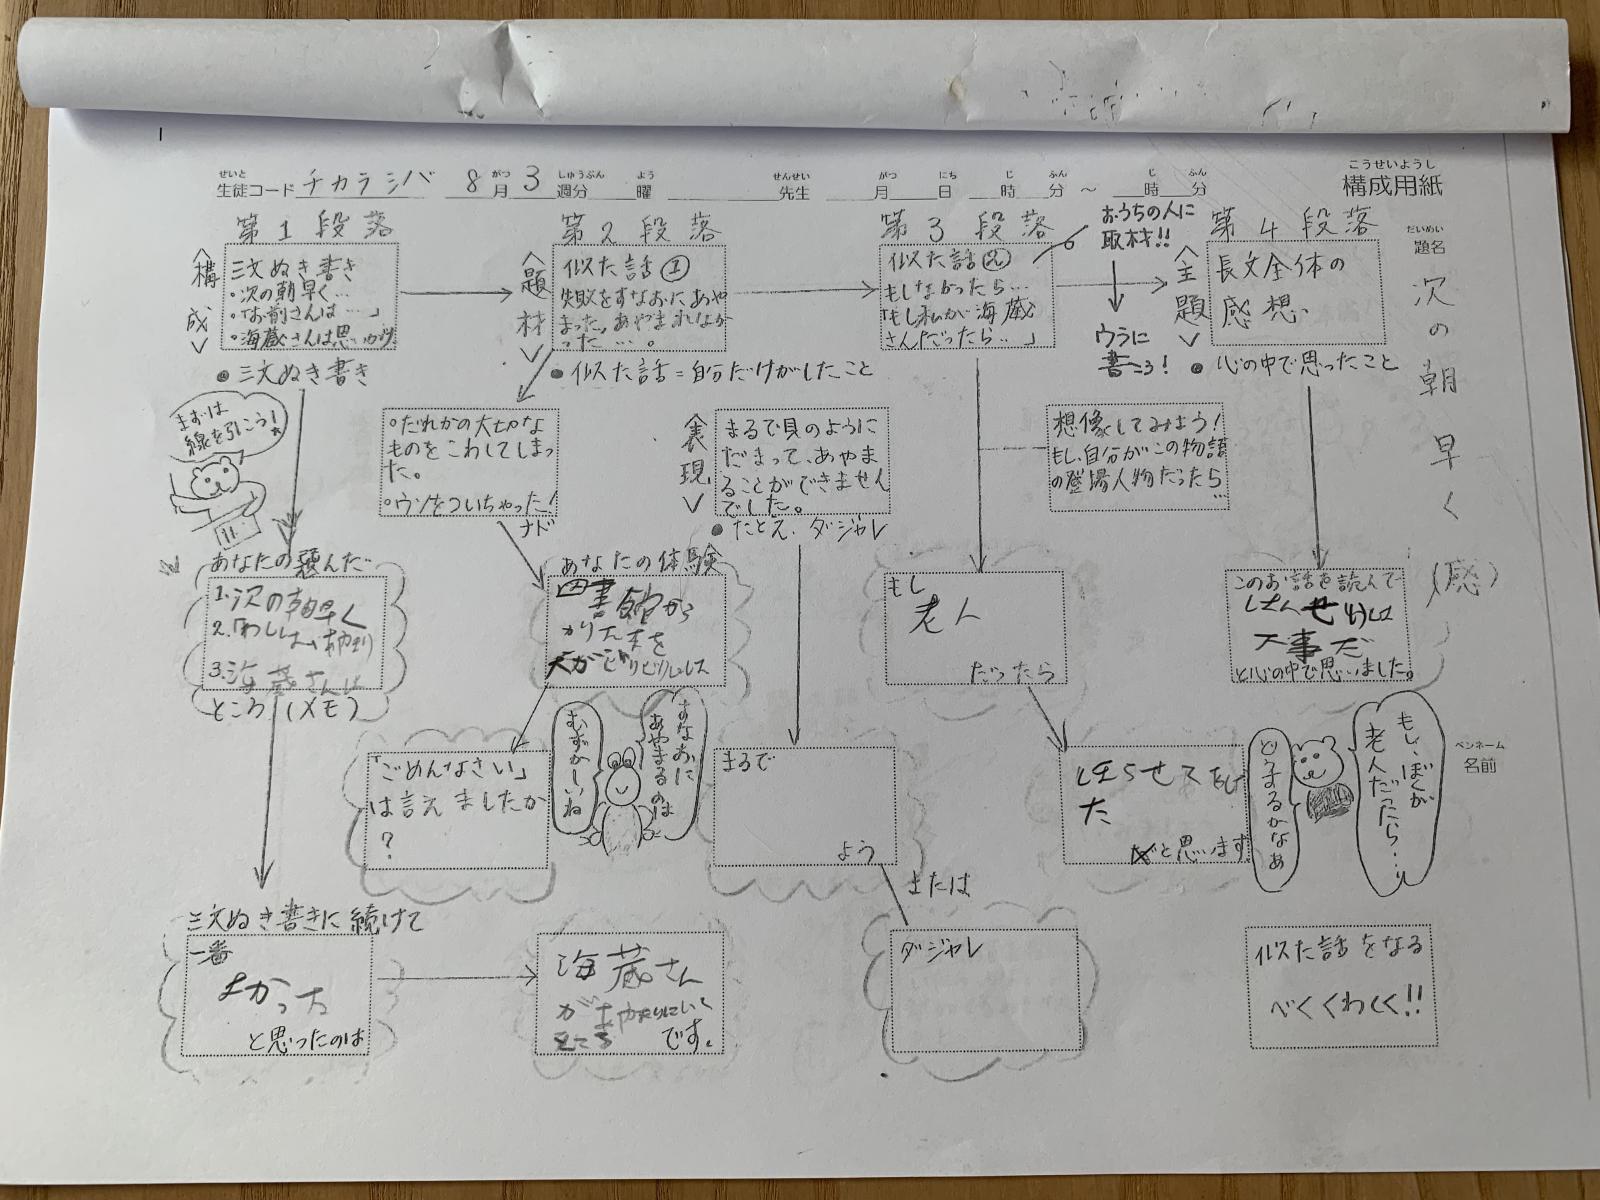 こうせいようし
構成用紙
せいと
生徒コード チカラシバ 8月3週分 曜 先生 月 日 時 分 ～ 時 分
がつ しゅうぶん よう せんせい がつ にち じ ふん じ ふん
だいめい
題名
次の朝早く(感)
ペンネーム
名前
第1段落
＜構成＞
三文ぬき書き
・次の朝早く…
・「お前さんは…」
・海蔵さんは思いがけ
●三文ぬき書き
まずは
線を引こう！
第2段落
＜題材＞
似た話①
失敗をすなおにあや
まった。あやまれなか
った…。
●似た話＝自分だけがしたこと
第3段落
似た話②
もし なかったら…
「もし私が海蔵
さんだったら…」
おうちの人に
取材!!
ウラに
書こう！
第4段落
＜主題＞
長文全体の
感想。
●心の中で思ったこと
○だれかの大切な
ものをこわしてしまっ
た。
○ウソをついちゃった！
ナド
＜表現＞
まるで貝のように
だまって、あやま
ることができません
でした。
●たとえ、ダジャレ
想像してみよう！
もし、自分がこの物語
の登場人物だったら
…
あなたの選んだ
1.次の朝早く
2.「わしは、
3.海蔵さんは
ところ（メモ）
あなたの体験
図書館から
かりた本を
もし
老人
だったら
このお話を読んで
大事だ
と心の中で思いました。
「ごめんなさい」
は言えましたか
？
すなおに
あやまるのは
むずかしいね
まるで
よう
または
た
と思います
もし、ぼくが
老人だったら…
どうするかなあ
三文ぬき書きに続けて
一番
よかった
と思ったのは
海蔵さん
が
ところ です。
ダジャレ
似た話をなる
べくくわしく!!